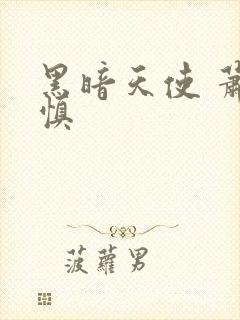 黑暗天使 萧
慎
菠蘿男